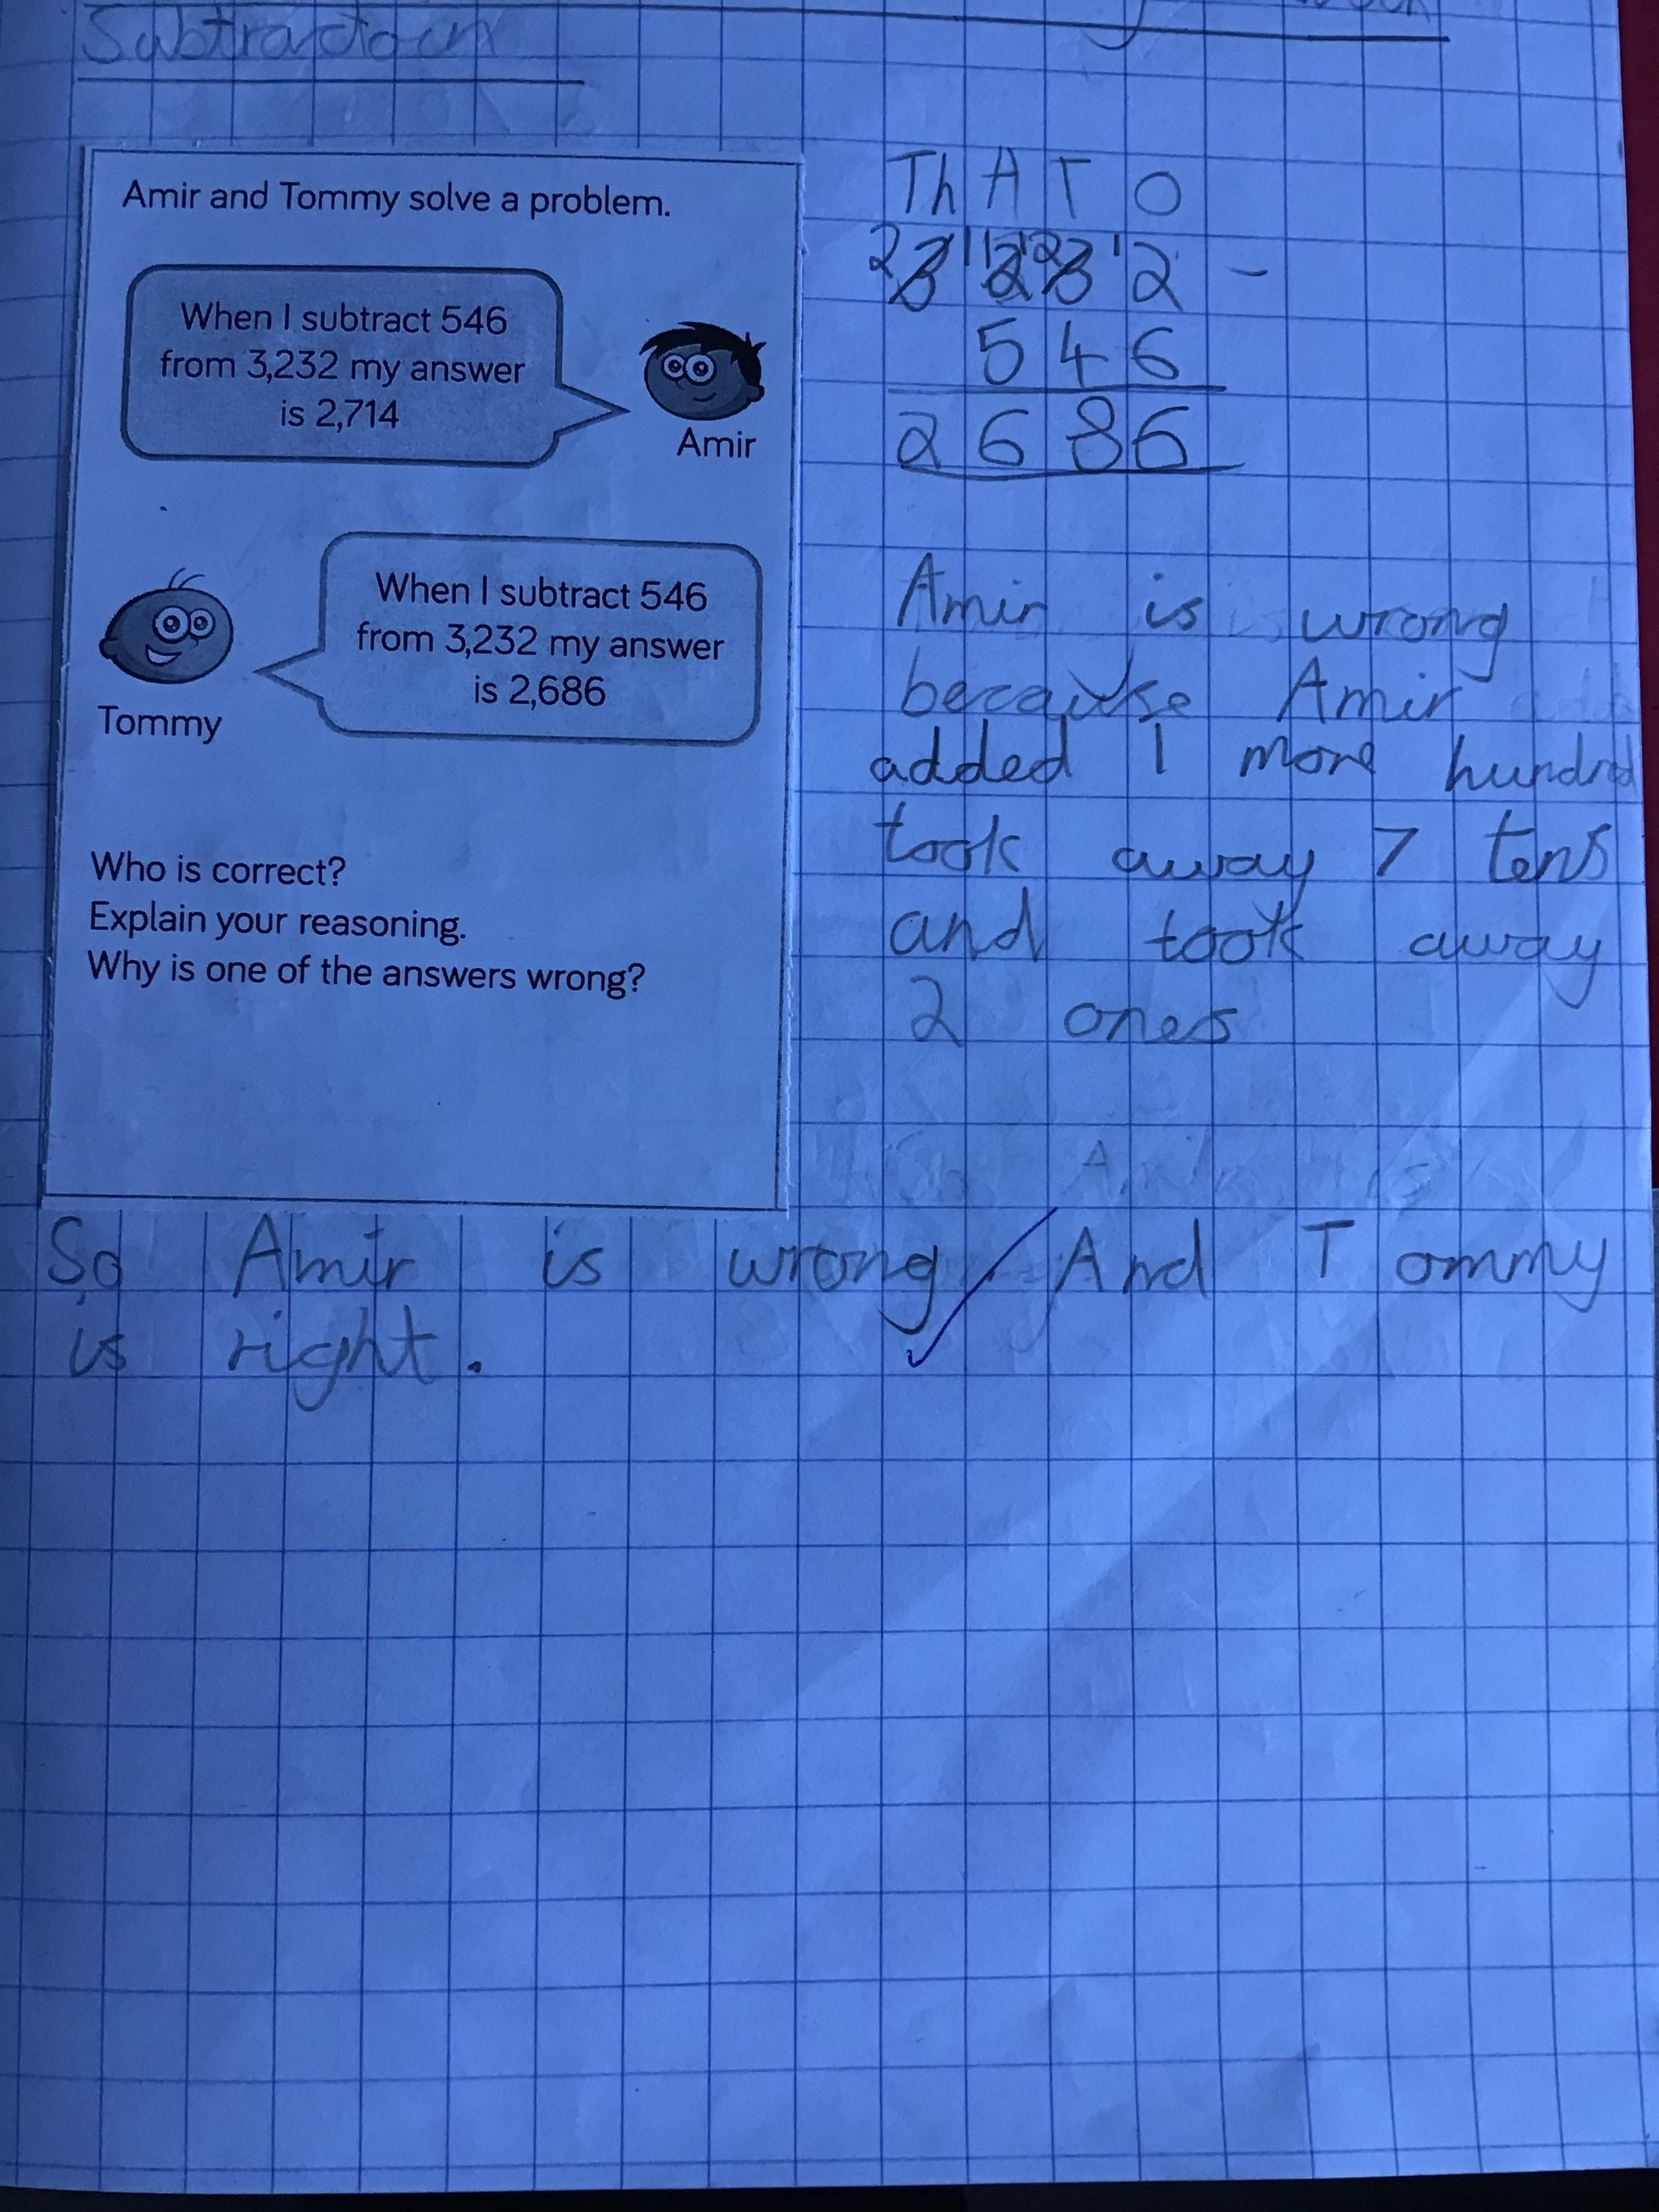 Subtraction
Amir and Tommy solve a problem.
When I subtract 546
from 3,232 my answer
is 2,714
Amir
When I subtract 546
from 3,232 my answer
is 2,686
Tommy
Who is correct?
Explain your reasoning.
Why is one of the answers wrong?
Th H T O
2 3 11 2 12 3 1 2 -
5 4 6
2 6 8 6
Amir is wrong
because Amir
added 1 more hundred
took away 7 tens
and took away
2 ones
So Amir is wrong And Tommy
is right.